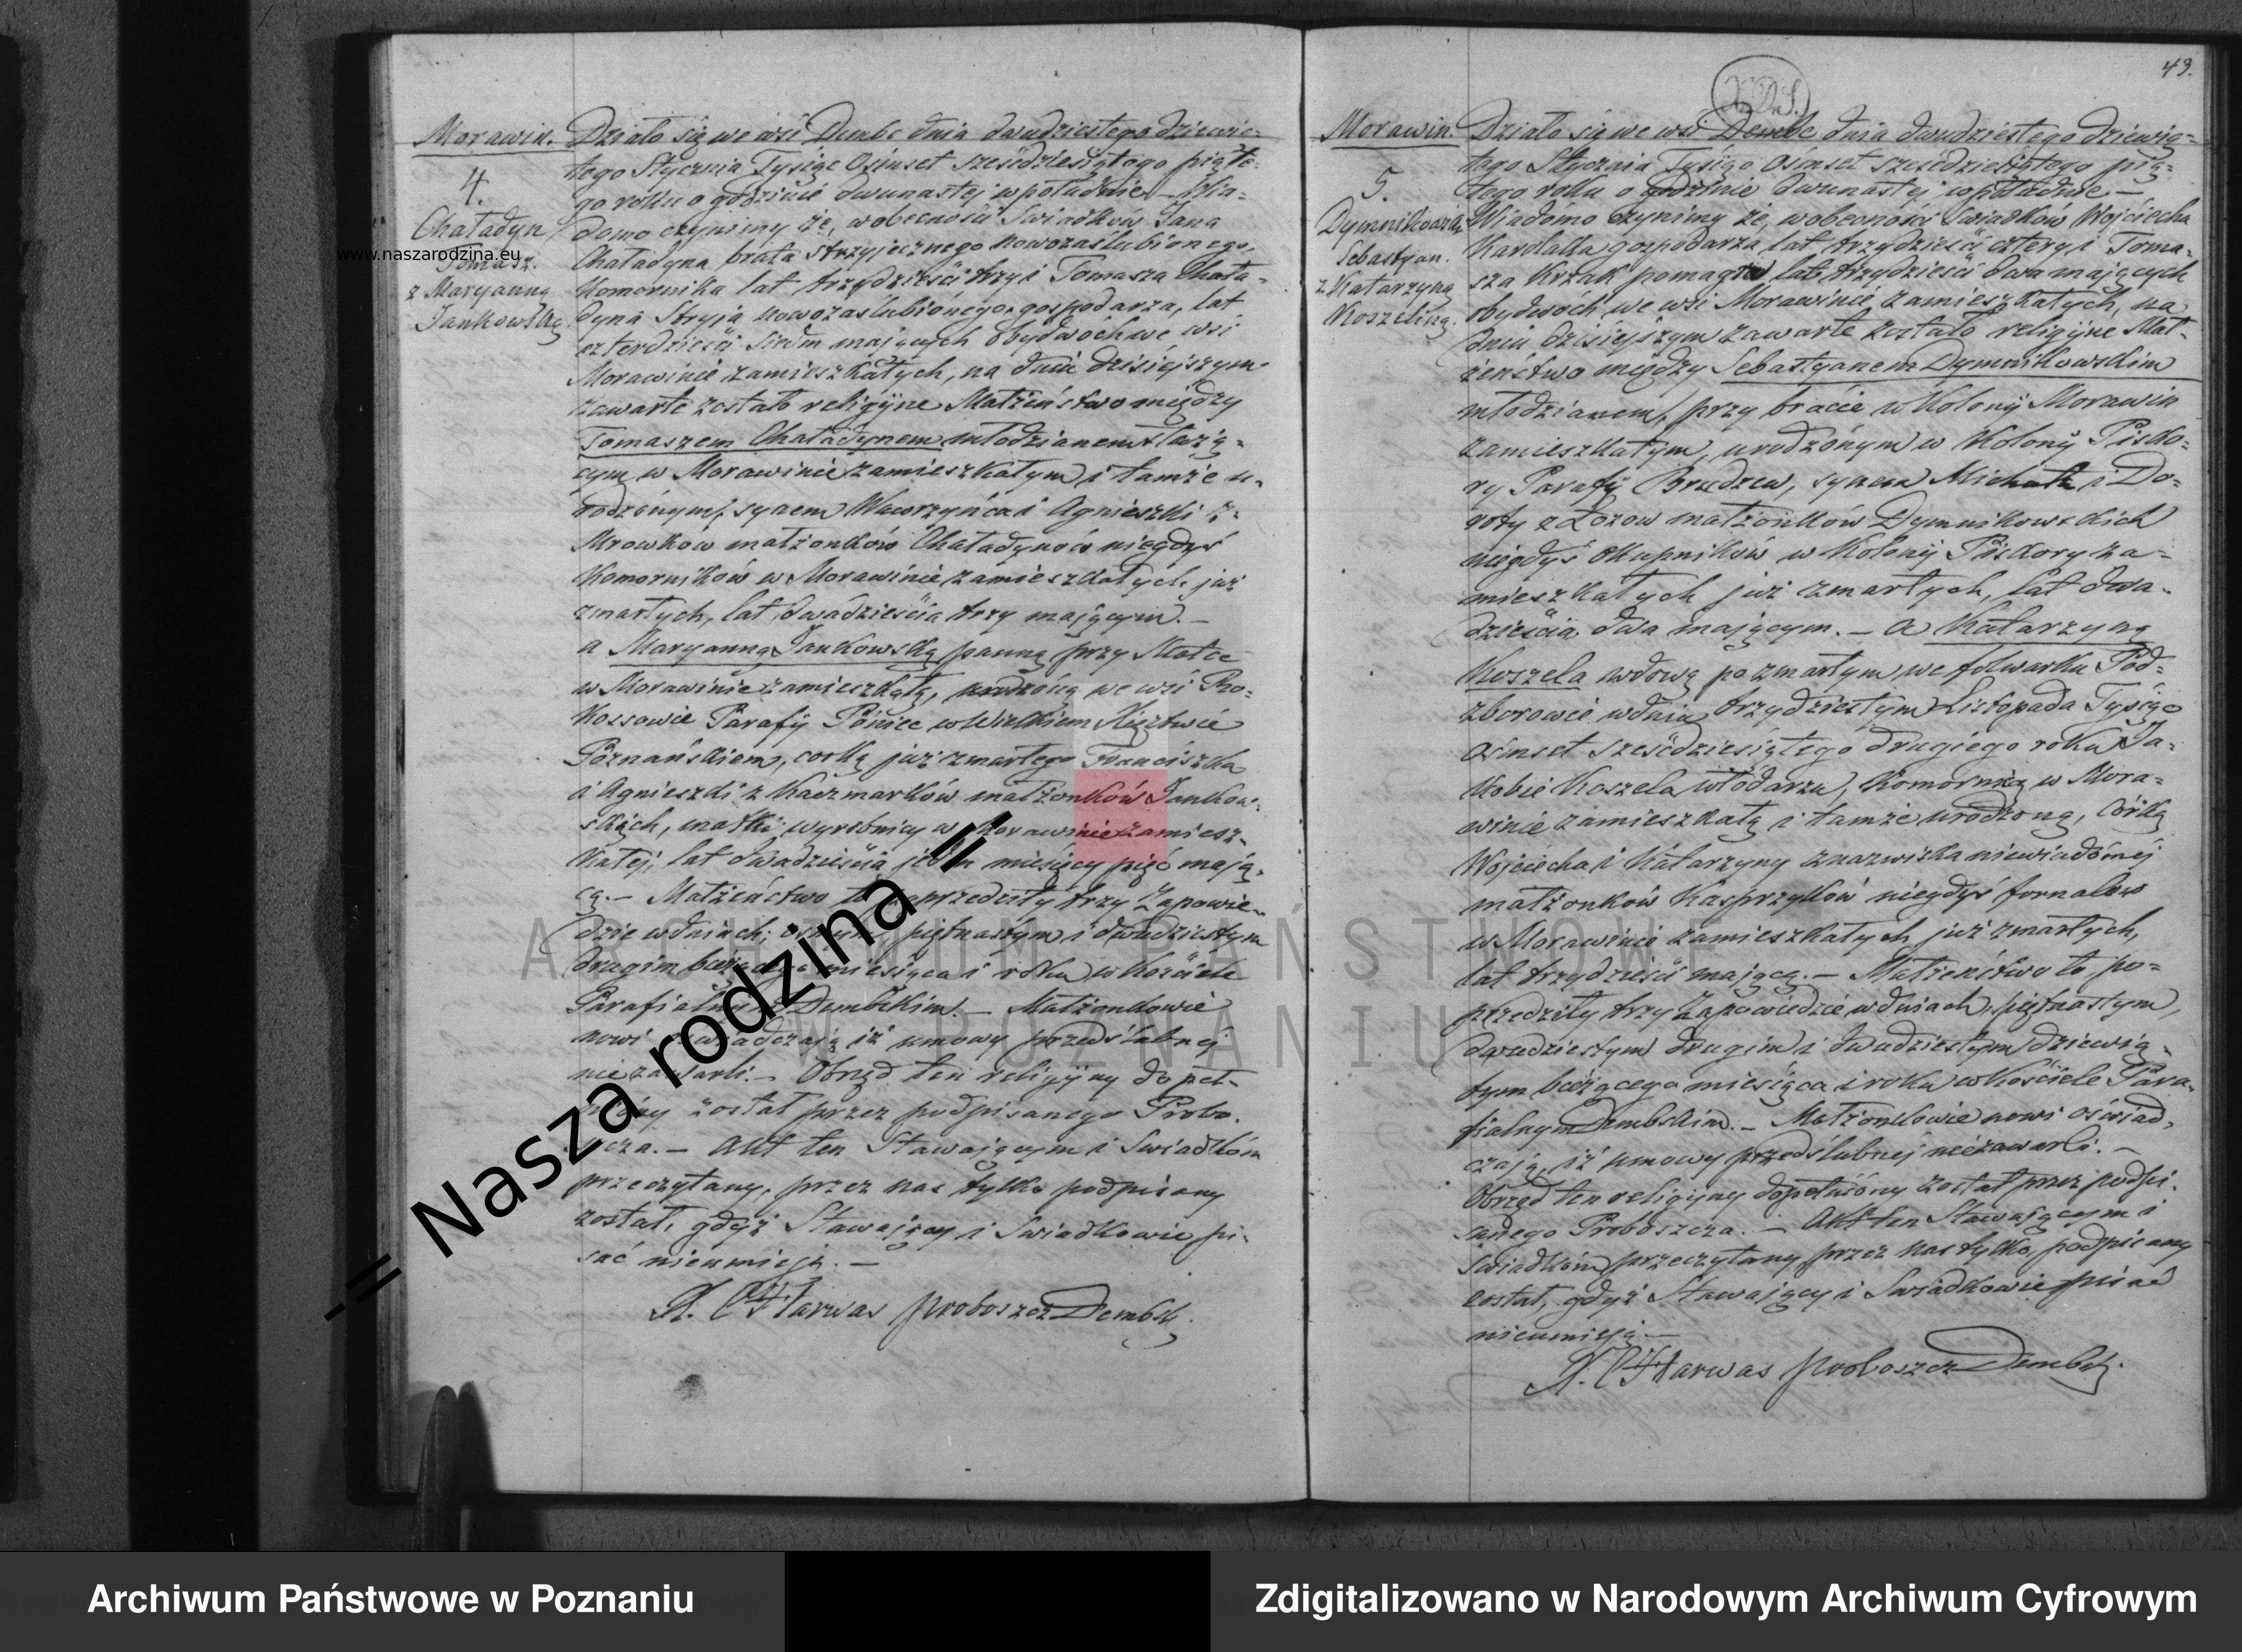 Morawin.
4.
Chaładyn
Tomasz.
z Maryanną
Jankowską
Działo się we wsi Dembe dnia dwudziestego dziewią=
tego Stycznia Tysiąc Ośmset sześćdziesiątego piąte=
go roku o godzinie dwunastej w południe – Wia=
domo czynimy że, w obecności Świadków Jana
Chaładyna brata stryjecznego nowozaślubionego,
Komornika lat trzydzieści trzy i Tomasza Chała=
dyna Stryja nowozaślubionego, gospodarza, lat
czterdzieści siedm mających obydwóch we wsi
Morawinie zamieszkałych, na dniu dzisiejszym
zawarte zostało religijne Małżeństwo między
Tomaszem Chaładynem młodzianem służą=
cym w Morawinie zamieszkałym i tamże u=
rodzonym, synem Wawrzyńca i Agnieszki z
Mrowkow małżonków Chaładynów niegdyś
Komorników w Morawinie zamieszkałych już
zmarłych, lat dwadzieścia trzy mającym. –
a Maryanną Jankowską panną przy Matce
w Morawinie zamieszkałą, urodzoną we wsi Ro=
kossowie Parafij Poniec w Wielkiem Księztwie
Poznańskiem, corką już zmarłego Franciszka
i Agnieszki z Kaczmarków małżonków Jankow=
skich, matki wyrobnicy w Morawinie zamiesz=
kałej, lat dwadzieścia jeden miesięcy pięć mają=
cą. – Małżeństwo to poprzedziły trzy Zapowie=
dzie w dniach; osmym, piętnastym i dwudziestym
drugim bieżącego miesiąca i roku w Kościele
Parafialnym Dembskim. – Małżonkowie
nowi oświadczają iż umowy przedślubnej
nie zawarli. – Obrząd ten religijny dopeł=
niony został przez podpisanego Probo=
szcza. – Akt ten Stawającym i Świadkom
przeczytany, przez nas tylko podpisany
został, gdyż Stawający i Świadkowie pi=
sać nieumieją. –
X. Harwas proboszcz Dembsk.
49.
Morawin.
5.
Sebastyan.
z Katarzyną
Koszeliną.
Działo się we wsi Dembe dnia dwudziestego dziewią=
tego Stycznia Tysiąc Ośmset sześćdziesiątego pią=
tego roku o godzinie dwunastej w południe. –
Wiadomo czynimy że, w obecności Świadków Wojciecha
gospodarza lat trzydzieści cztery i Toma=
sza Krzak lat trzydzieści dwa mających
obydwóch we wsi Morawinie zamieszkałych, na
dniu dzisiejszym zawarte zostało religijne Mał=
żeństwo między Sebastyanem Dymnikowskim
młodzianem, przy bracie w Kolonij Morawin
zamieszkałym, urodzonym w Kolonij Pisko=
ry Parafij Brudzew, synem Michała i Do=
roty z Łozow małżonków Dymnikowskich
niegdyś okupników w Kolonij Piskory za=
mieszkałych już zmarłych, lat dwa=
dzieścia dwa mającym. – a Katarzyną
Koszela wdową po zmarłym we folwarku Pod=
zborowie w dniu trzydziestym Listopada Tysiąc
ośmset sześćdziesiątego drugiego roku Ja=
kobie Koszela włodarzu, Komornicą w Mora=
winie zamieszkałą i tamże urodzoną, Córką
Wojciecha i Katarzyny z nazwiska niewiadomej
małżonków Kasprzyków niegdyś fornalów
w Morawinie zamieszkałych, już zmarłych,
lat trzydzieści mającą. – Małżeństwo to po=
przedziły trzy Zapowiedzie w dniach; piętnastym,
dwudziestym drugim i dwudziestym dziewią=
tym bieżącego miesiąca i roku w Kościele Para=
fialnym Dembskim. – Małżonkowie nowi oświad=
czają, iż umowy przedślubnej niezawarli. –
Obrząd ten religijny dopełniony został przez podpi=
sanego Proboszcza. – Akt ten Stawającym i
Świadkom przeczytany przez nas tylko, podpisany
został, gdyż Stawający i Świadkowie pisać
nieumieją. –
X. Harwas proboszcz Dembsk.
www.naszarodzina.eu
-= Nasza rodzina =
ARCHIWUM PAŃSTWOWE
W POZNANIU
Archiwum Państwowe w Poznaniu
Zdigitalizowano w Narodowym Archiwum Cyfrowym